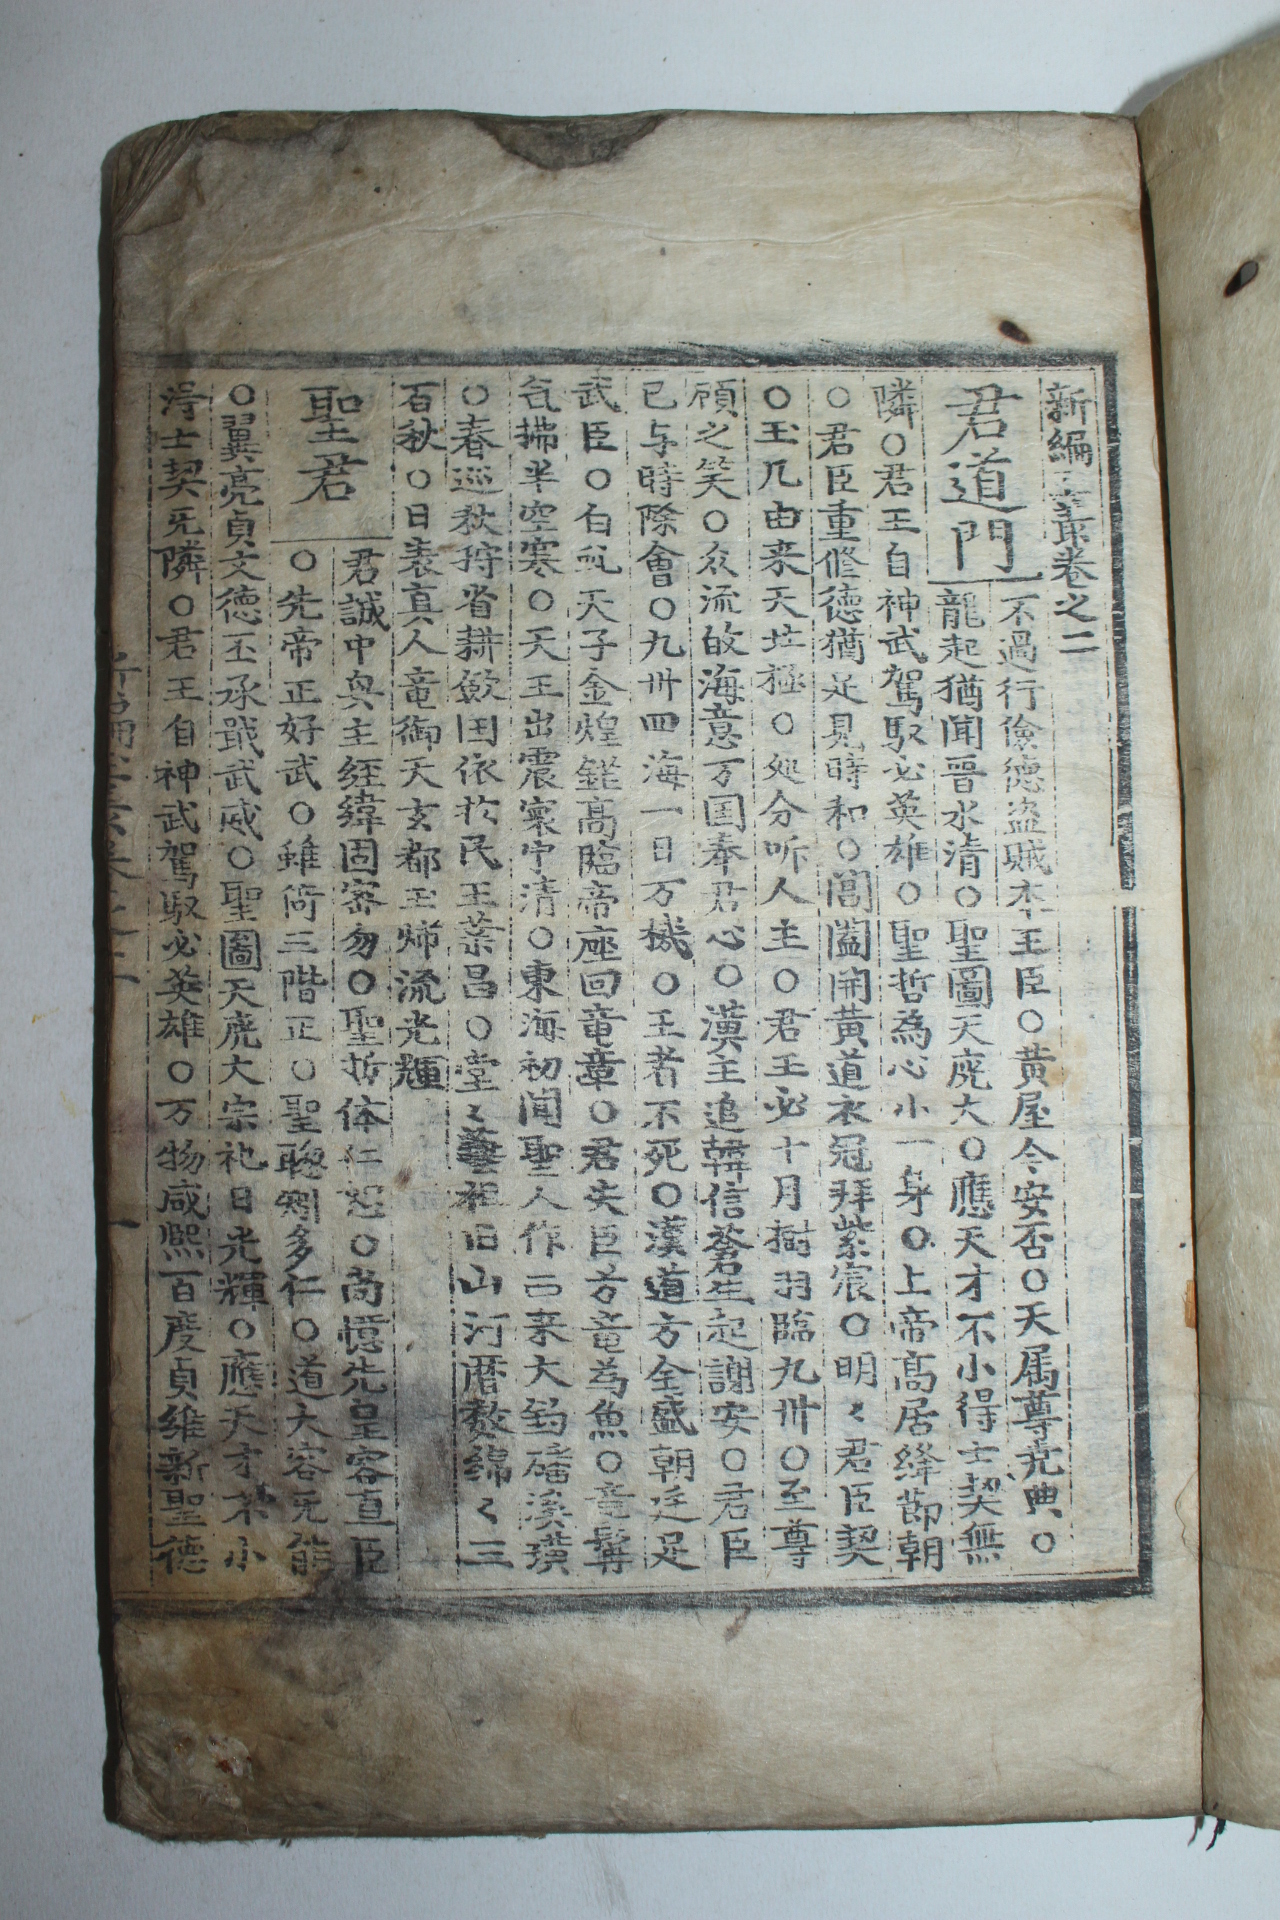 新編彙叢卷之二
君道門
不過行儉德盜賊本王臣○黃屋今安否○天属尊尭典○
龍起猶聞晋水清○聖圖天庬大○應天才不小得士契無
隣○君王自神武駕馭必英雄○聖哲為心小一身○上帝高居絳節朝
○君臣重修德猶足見時和○閶闔開黃道衣冠拜紫宸○明〻君臣契
○玉几由来天北極○処分听人主○君王必十月樹羽臨九卅○至尊
顧之笑○众流故海意万国奉君心○漢主追韓信蒼生起謝安○君臣
已与時際會○九卅四海一日万機○王者不死○漢道方全盛朝廷足
武臣○白虬天子金煌鋥高臨帝座回竜章○君失臣兮竜為魚○竜髯
氣拂半空寒○天王出震寰宇清○東海初聞聖人作西来大釣磻溪璜
○春巡秋狩省耕斂囯依扵民王業昌○堂〻祖旧山河暦数綿〻三
百秋○日表真人竜御天玄都玉㱕流光輝
聖君
君誠中興主經緯固密勿○聖哲体仁恕○尚憶先皇容直臣
○先帝正好武○雖倚三階正○聖聰剡多仁○道大容旡能
○翼亮貞文德丕承戢武威○聖圖天庬大宗祀日光輝○應天才不小
淂士契旡隣○君王自神武駕馭必英雄○万物咸熙百度貞維新聖德
卷之二
一